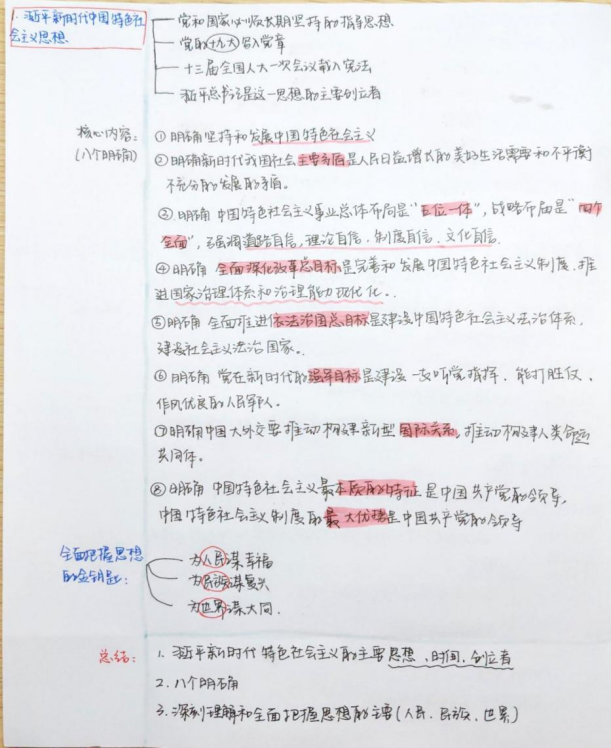 1. 习近平新时代中国特色社
会主义思想.
党和国家必须长期坚持的指导思想.
党的十九大写入党章
十三届全国人大一次会议载入宪法
习近平总书记是这一思想的主要创立者
核心内容:
(八个明确)
① 明确坚持和发展中国特色社会主义
② 明确新时代我国社会主要矛盾是人民日益增长的美好生活需要和不平衡
不充分的发展的矛盾。
③ 明确 中国特色社会主义事业总体布局是“五位一体”, 战略布局是“四个
全面”, 强调道路自信, 理论自信、制度自信、文化自信.
④ 明确 全面深化改革总目标是完善和发展中国特色社会主义制度、推
进国家治理体系和治理能力现代化.
⑤ 明确 全面推进依法治国总目标是建设中国特色社会主义法治体系,
建设社会主义法治国家.
⑥ 明确 党在新时代的强军目标是建设一支听党指挥、能打胜仗、
作风优良的人民军队.
⑦ 明确中国大外交要推动构建新型国际关系, 推动构建人类命运
共同体.
⑧ 明确 中国特色社会主义最本质的特征是中国共产党的领导,
中国特色社会主义制度的最大优势是中国共产党的领导
全面把握思想
的金钥匙:
为人民谋幸福
为民族谋复兴
为世界谋大同.
总结:
1. 习近平新时代特色社会主义的主要思想、时间、创立者
2. 八个明确
3. 深刻理解和全面把握思想的主要(人民、民族、世界)